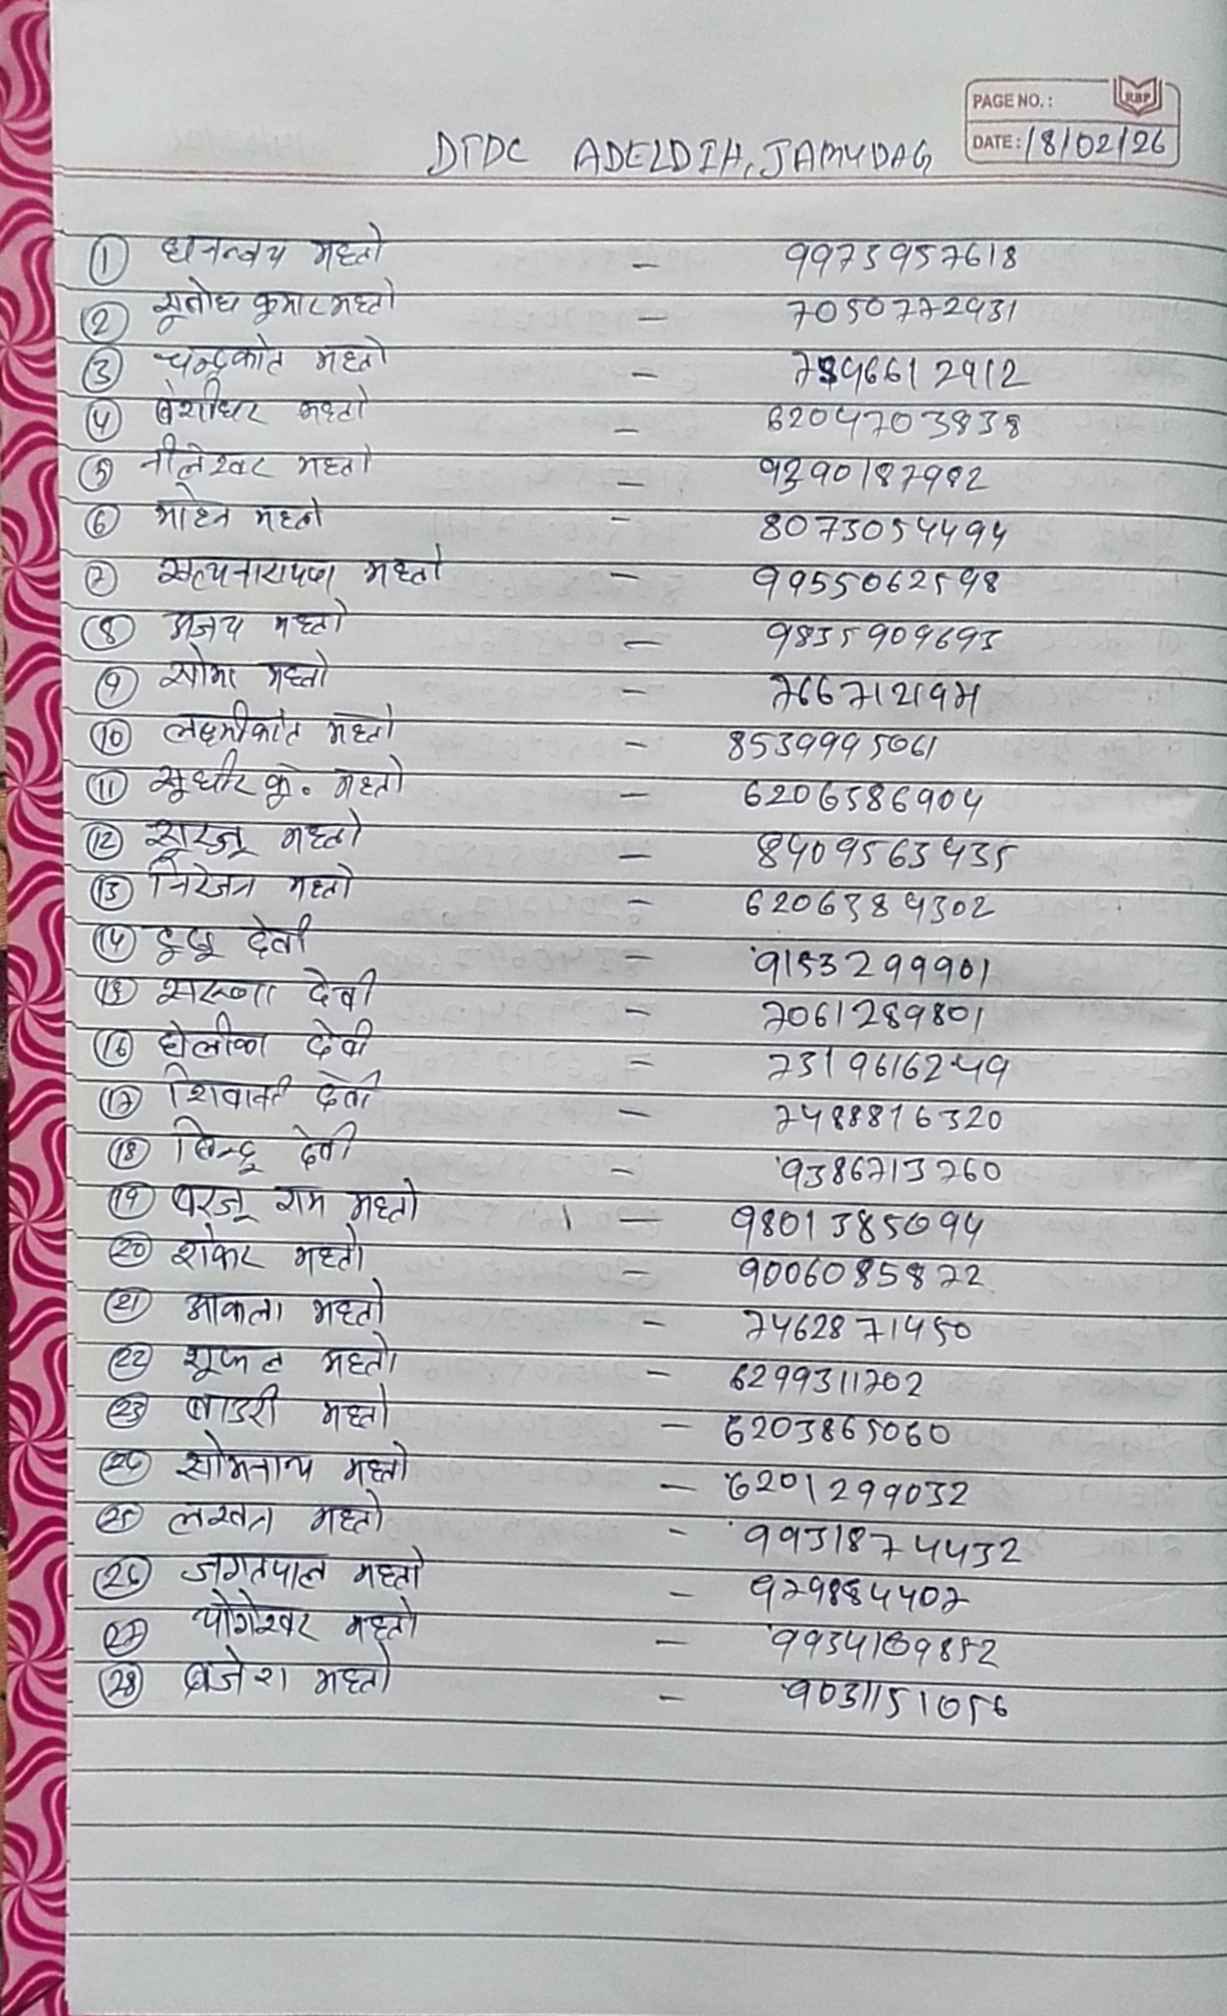 PAGE NO. :
RBP
DATE : 18/02/26
DTDC ADELDIH, JAMUDAG
① धनन्जय महतो - 9973957618
② सुबोध कुमार महतो - 7050772931
③ चन्द्रकांत महतो - 7596612912
④ बंशीधर महतो - 6204703838
⑤ नीलेश्वर महतो - 9390187982
⑥ मोहन महतो - 8073054494
⑦ सत्यनारायण महतो - 9955062598
⑧ अजय महतो - 9835909693
⑨ सोमा महतो -
⑩ लक्ष्मीकांत महतो - 8539995061
⑪ सुधीर कु. महतो - 6206586904
⑫ सुरजू महतो - 8409563435
⑬ निरंजन महतो - 6206384302
⑭ देवी - 9153299901
⑮ देवी - 7061289801
⑯ देवी - 7319616249
⑰ देवी - 7488816320
⑱ बिन्दु देवी - 9386713760
⑲ बरजू राम महतो - 9801385094
⑳ शंकर महतो - 9006085872
㉑ आकला महतो - 7462871450
㉒ महतो - 6299311702
㉓ बाउरी महतो - 6203865060
㉔ सोमनाथ महतो - 6201299032
㉕ लखन महतो - 9931874432
㉖ जगतपाल महतो - 979884407
㉗ योगेश्वर महतो - 9934109852
㉘ ब्रजेश महतो - 9031151056